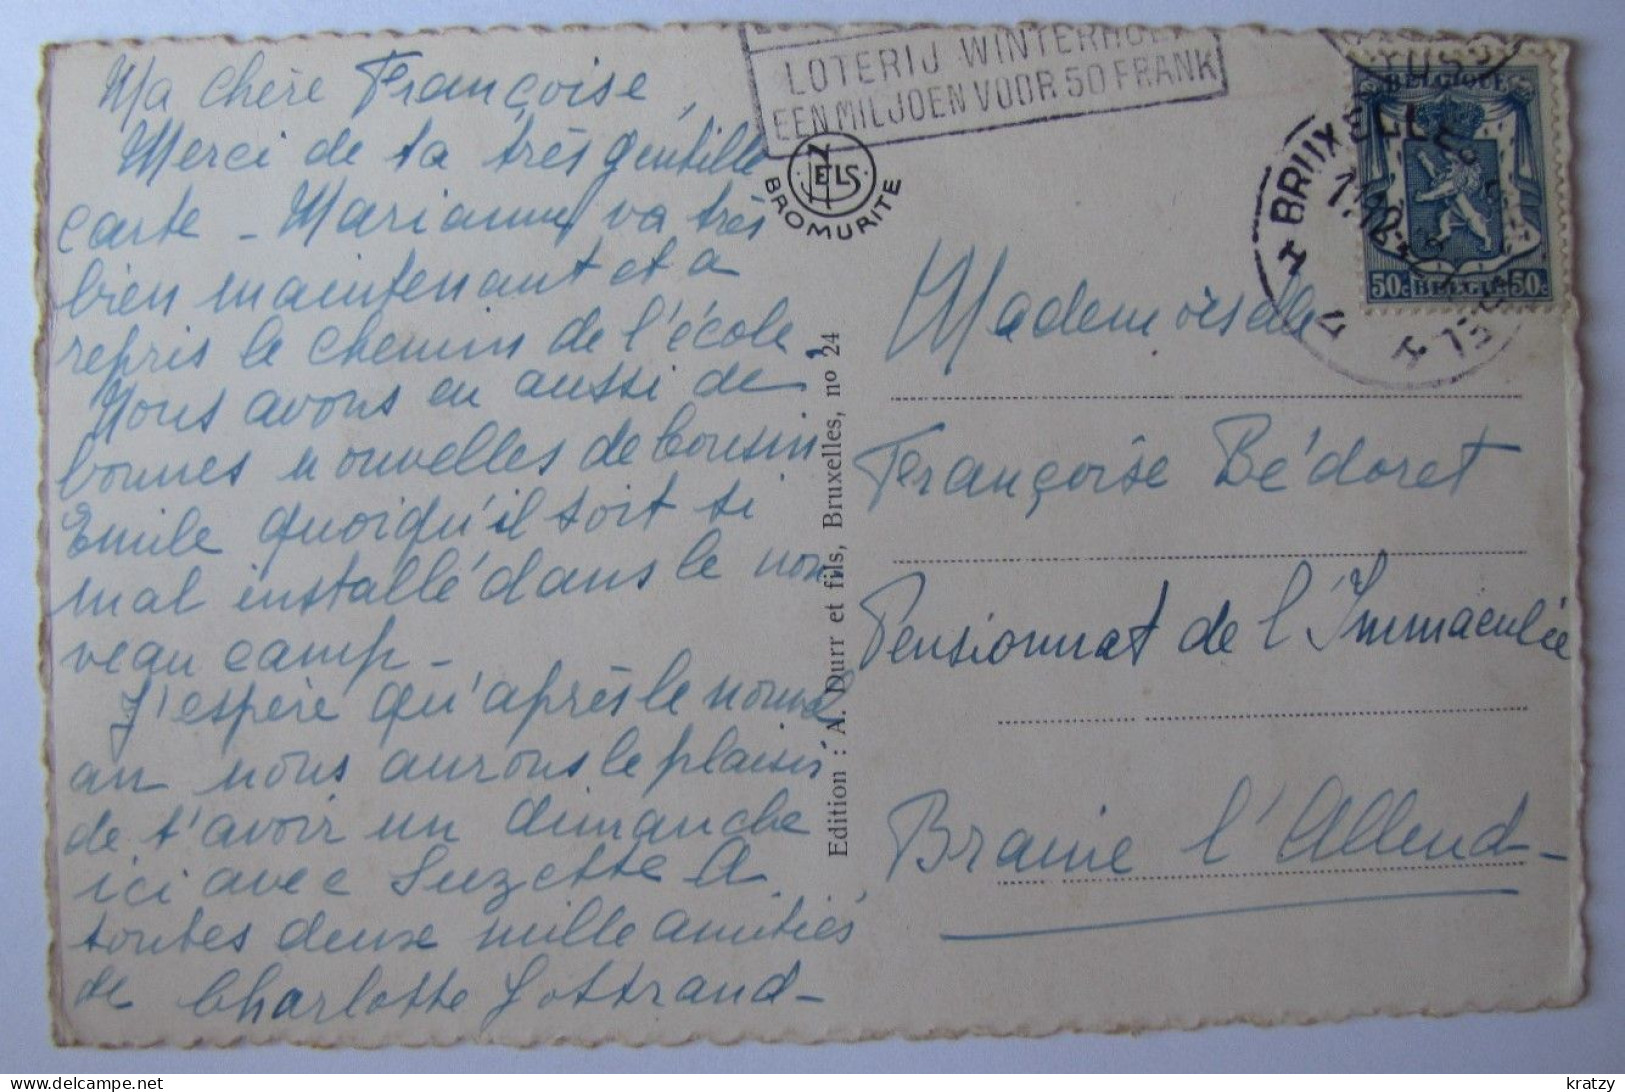 Ma chère Françoise,
Merci de ta très gentille
carte - Marianne va très
bien maintenant et a
repris le chemin de l'école
Nous avons eu aussi de
bonnes nouvelles de Cousin
Emile quoiqu'il soit si
mal installé dans le nou
veau camp -
J'espère qu'après le nouvel
an nous aurons le plaisir
de t'avoir un dimanche
ici avec Suzette A
toutes deux mille amitiés
de Charlotte Lottrand -
LOTERIJ
EEN MILJOEN VOOR 50 FRANK
NELS
BROMURITE
Edition : A. Durr et fils, Bruxelles, no 24
BELGIQUE
50c BELGIE 50c
BRUXELLES
Mademoiselle
Françoise Bédoret
Pensionnat de l'Immaculée
Braine l'Alleud -
kratzy